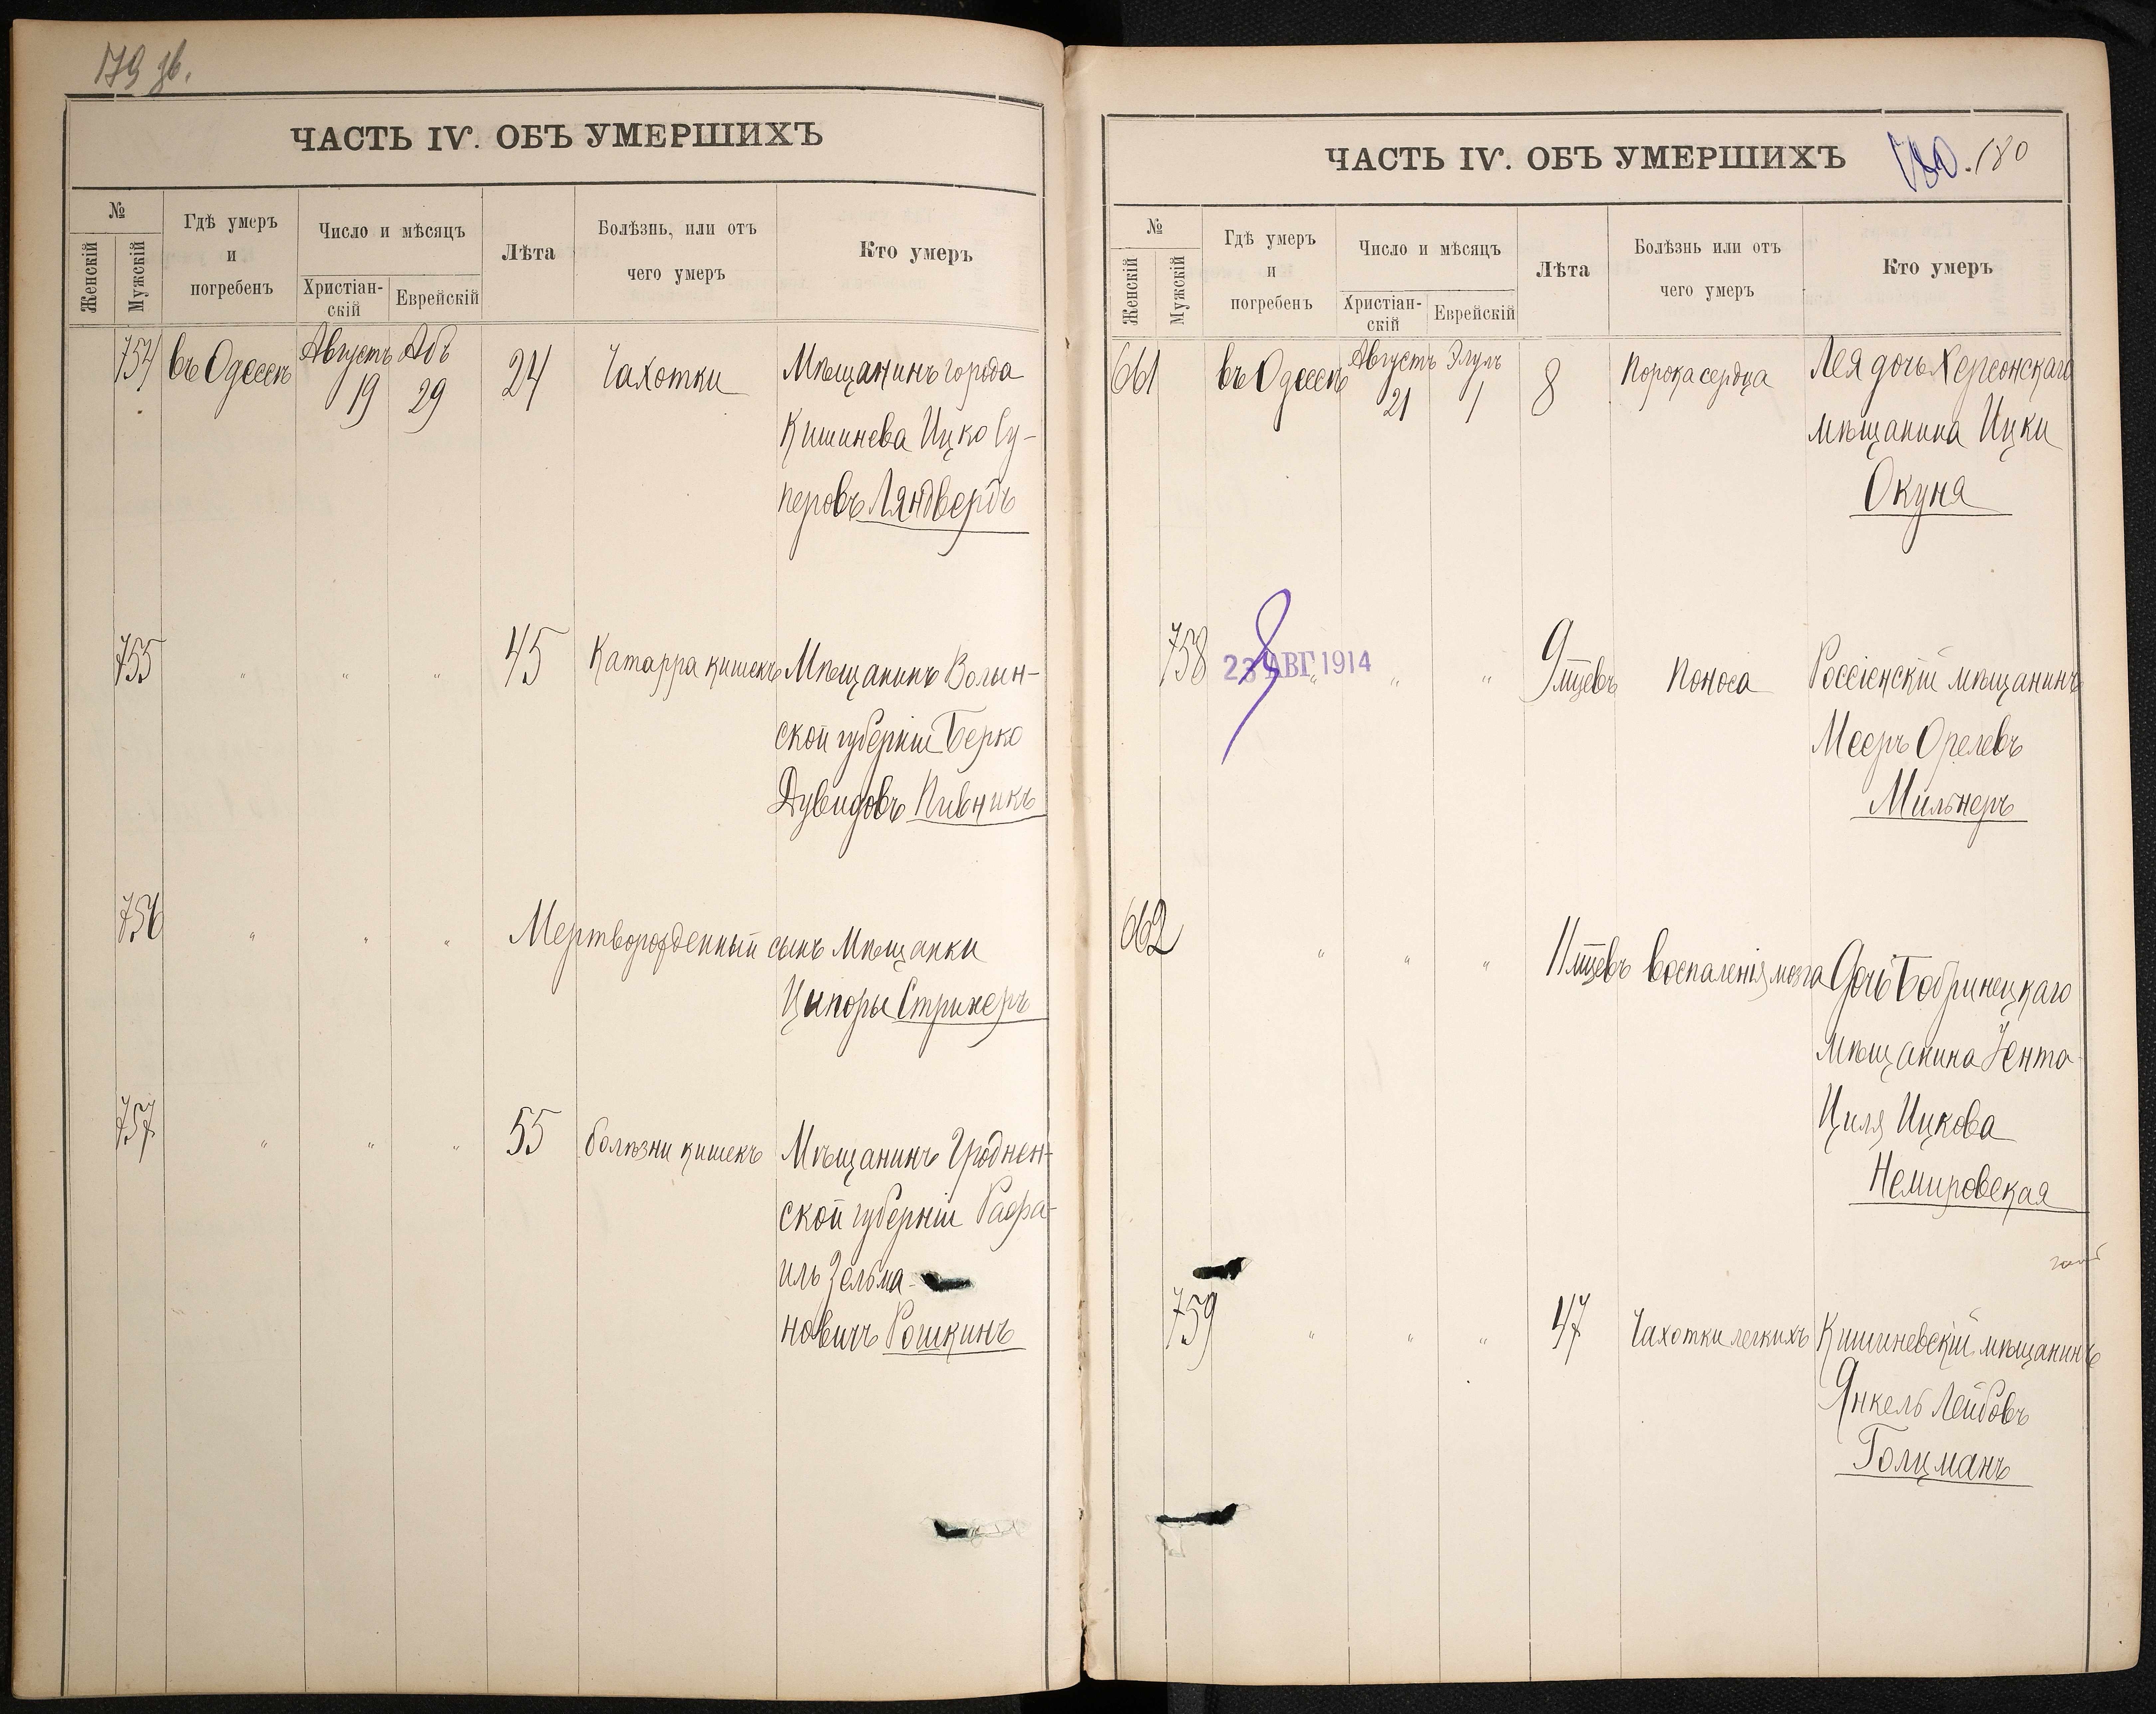 179 об.
ЧАСТЬ IV. ОБЪ УМЕРШИХЪ
№
Женскій
Мужскій
Гдѣ умеръ
и
погребенъ
Число и мѣсяцъ
Христіан-
скій
Еврейскій
Лѣта
Болѣзнь, или отъ
чего умеръ
Кто умеръ
754 въ Одессѣ Августъ 19 Абъ 29 24 Чахотки Мѣщанинъ города
Кишинева Ицко Су-
перовъ Ляндвердъ
755 " " " 45 Катарра кишекъ Мѣщанинъ Волын-
ской губерніи Берко
Дувидовъ Пивникъ
756 " " " Мертворожденный сынъ Мѣщанки
Ципоры Стринеръ
757 " " " 55 болѣзни кишекъ Мѣщанинъ Гроднен-
ской губерніи Рафа-
иль Зельма-
новичъ Рошкинъ
ЧАСТЬ IV. ОБЪ УМЕРШИХЪ
180. 180
№
Женскій
Мужскій
Гдѣ умеръ
и
погребенъ
Число и мѣсяцъ
Христіан-
скій
Еврейскій
Лѣта
Болѣзнь или отъ
чего умеръ
Кто умеръ
661 въ Одессѣ Августъ 21 Элулъ 1 8 Порока сердца Лея дочь Херсонскаго
мѣщанина Ицки
Окуня
23 АВГ 1914
758 " " " 9 мѣцевъ Поноса Россіенскій мѣщанинъ
Мееръ Орелевъ
Мильнеръ
662 " " " 11 мѣцевъ воспаленія мозга Дочь Бобринецкаго
мѣщанина Ента-
Циля Ицкова
Немировская
759 " " " 47 Чахотки легкихъ Кишиневскій мѣщанинъ
Янкель Лейбовъ
Голцманъ